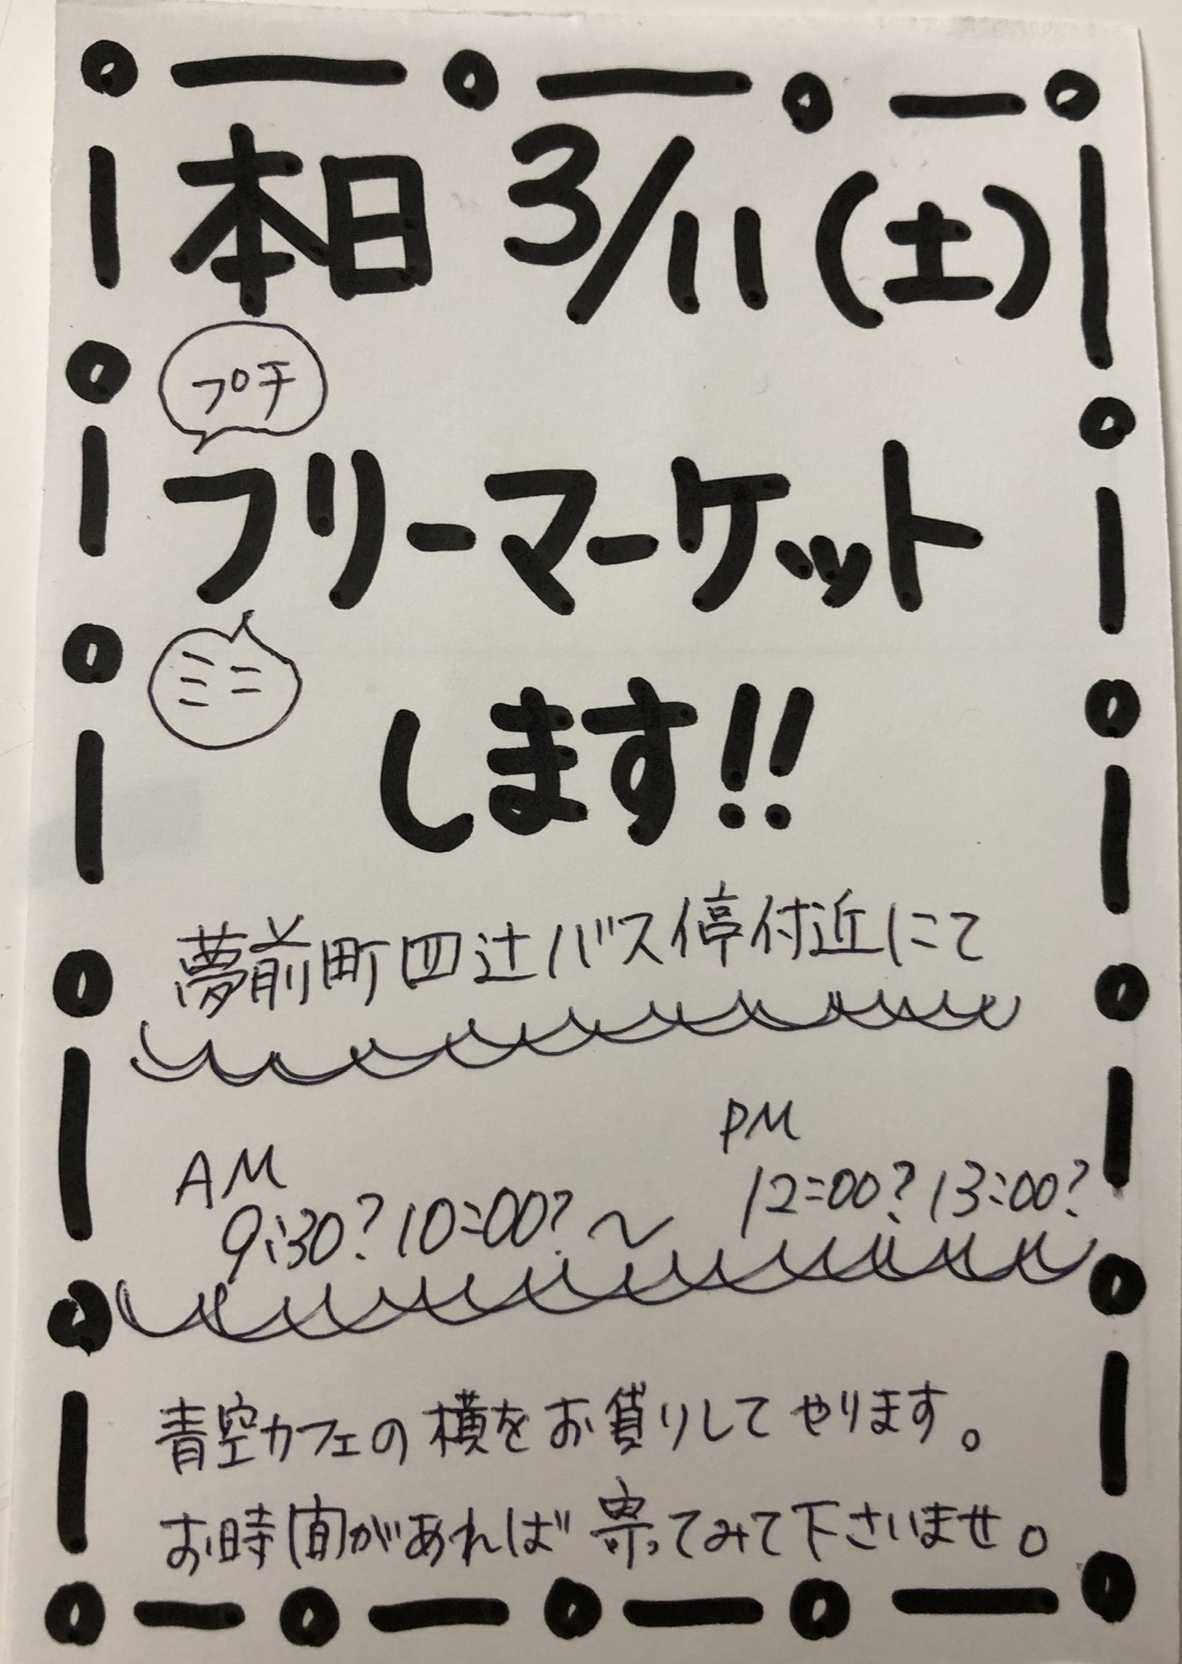 本日 3/11(土)
プチ
フリーマーケット
ミニ
します!!
夢前町四辻バス停付近にて
AM
PM
9:30?10:00?〜12:00?13:00?
青空カフェの横をお貸りしてやります。
お時間があれば寄ってみて下さいませ。